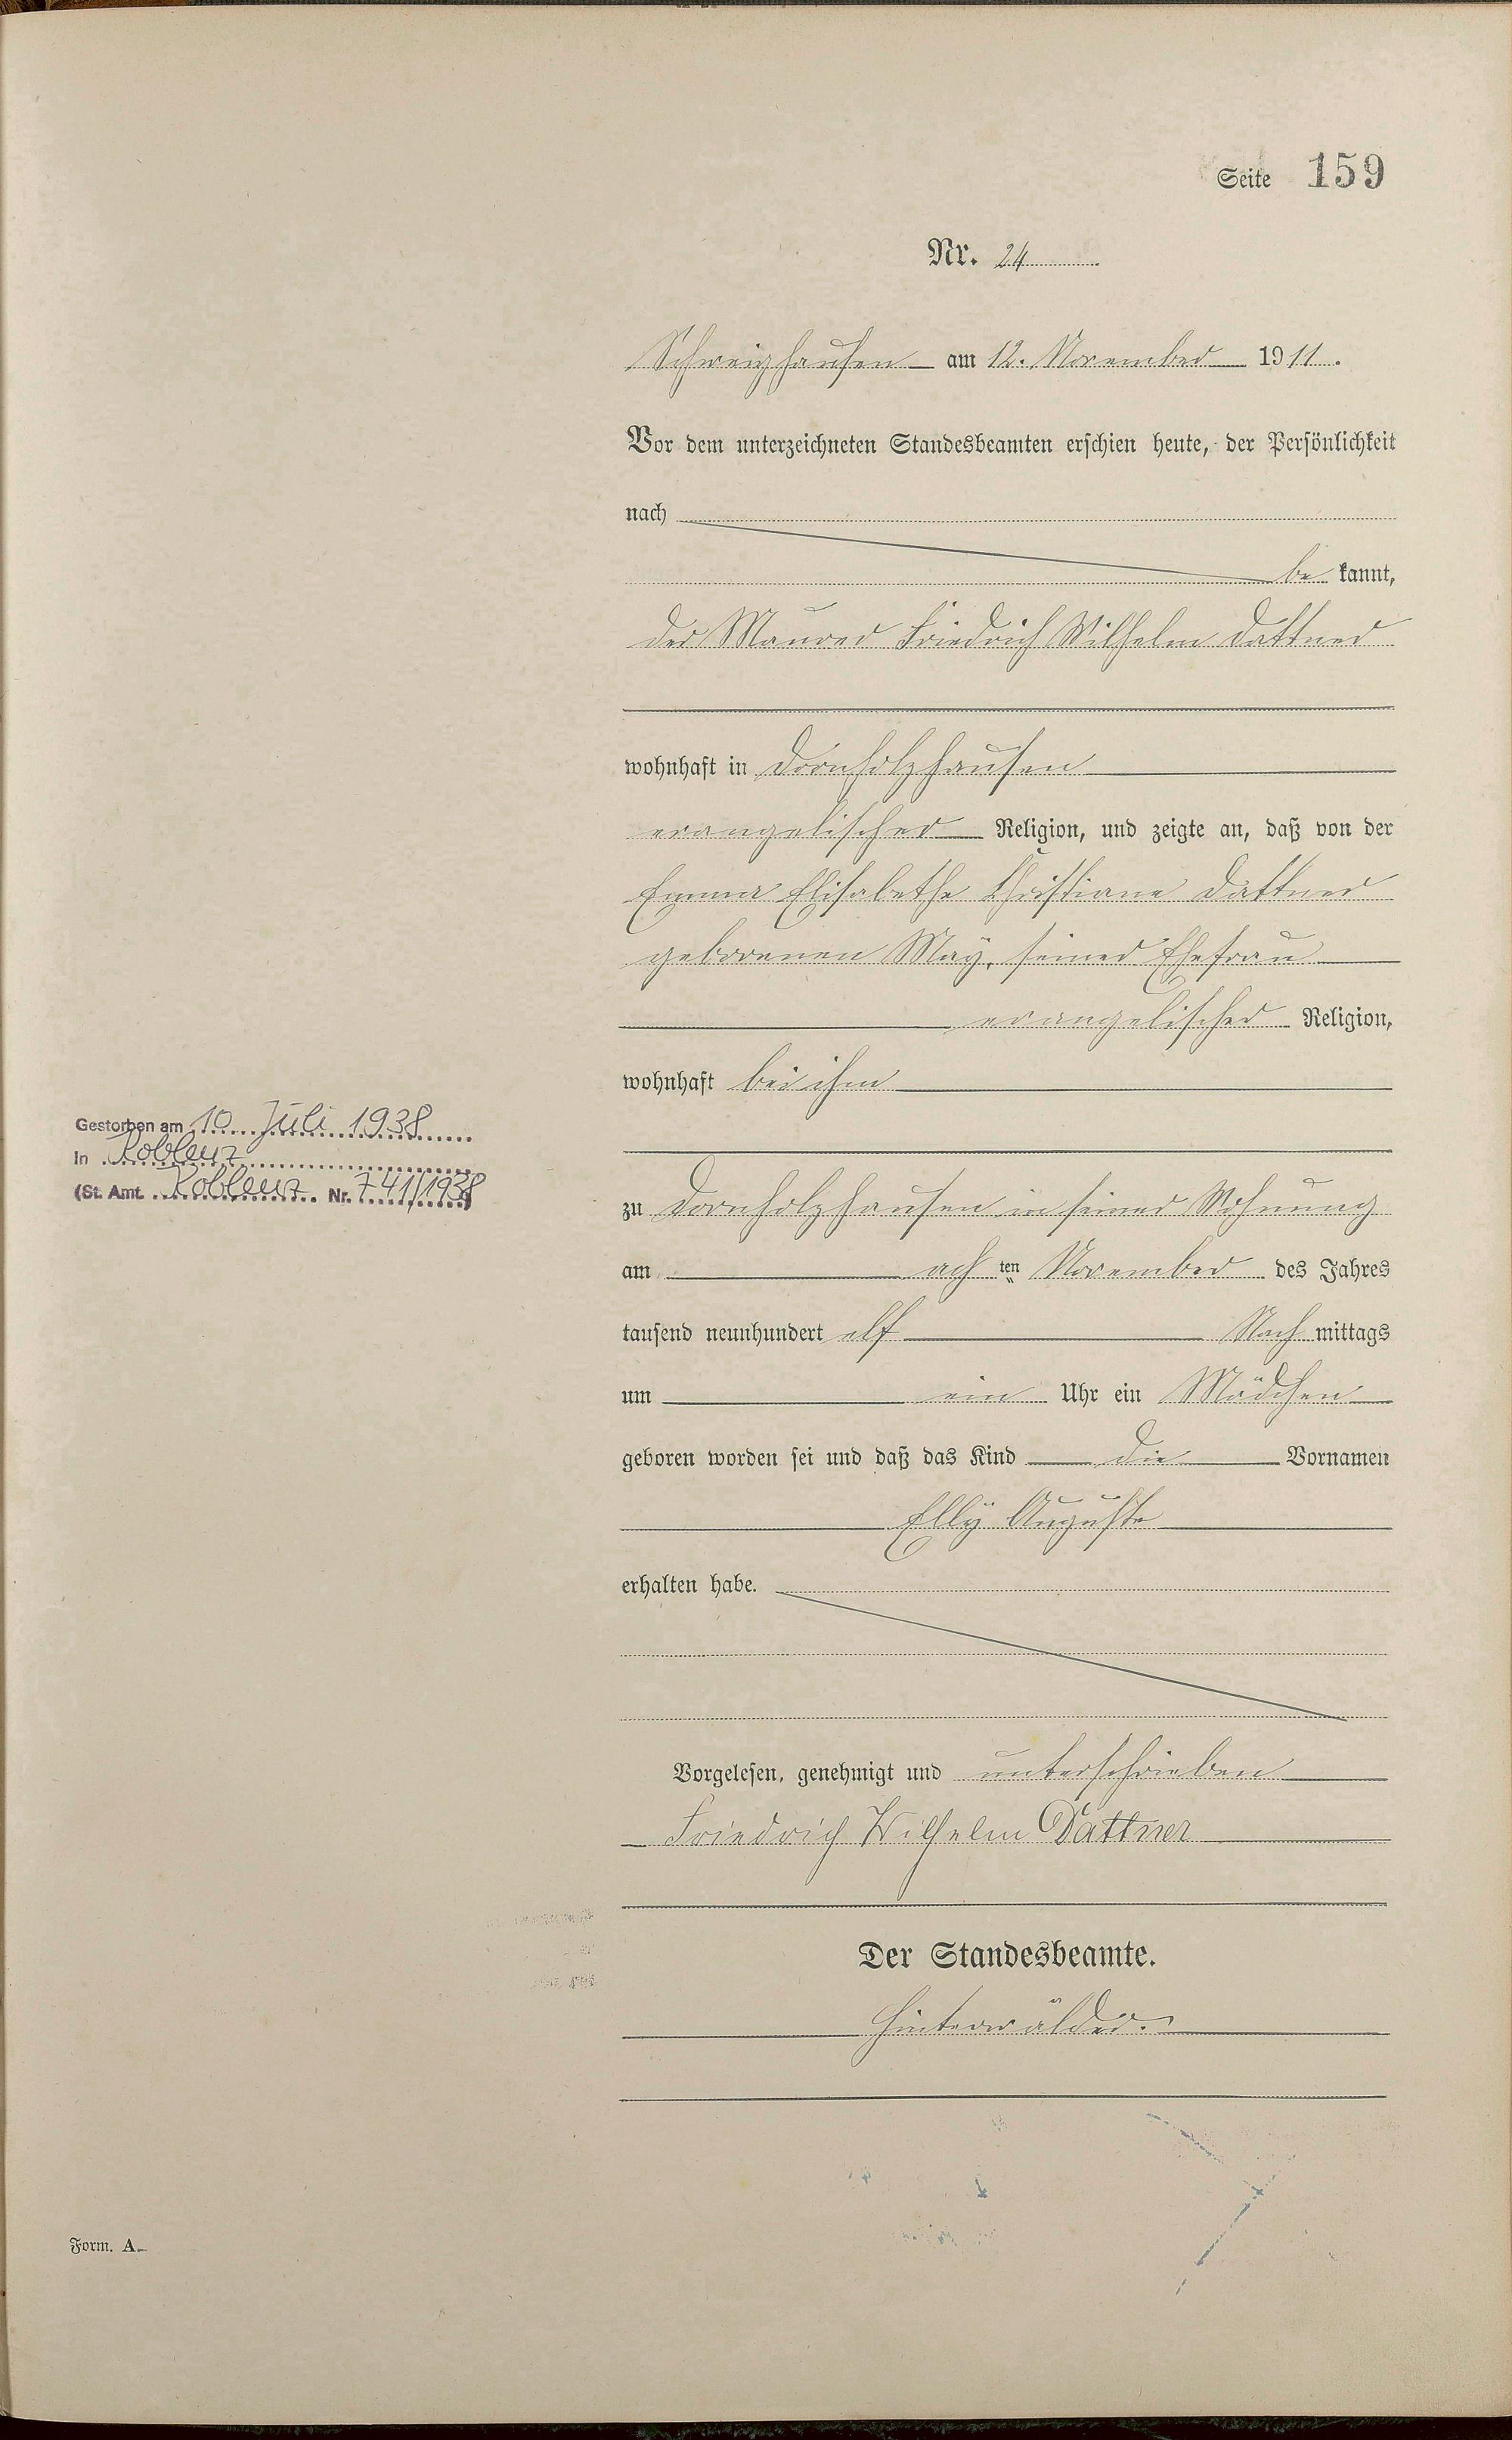 Seite 159
Nr. 24
Schweighausen am 12. November 1911.
Vor dem unterzeichneten Standesbeamten erschien heute, der Persönlichkeit
nach
be kannt,
der Maurer Friedrich Wilhelm Dattner
wohnhaft in Dornholzhausen
evangelischer Religion, und zeigte an, daß von der
Emma Elisabethe Christiane Dattner
geborenen Maÿ, seiner Ehefrau
evangelischer Religion,
wohnhaft bei ihm
Gestorben am 10. Juli 1938
in Koblenz
(St. Amt Koblenz Nr. 741/1938)
zu Dornholzhausen in seiner Wohnung
am ach ten November des Jahres
tausend neunhundert elf Nach mittags
um ein Uhr ein Mädchen
geboren worden sei und daß das Kind die Vornamen
Ellÿ Auguste
erhalten habe.
Vorgelesen, genehmigt und unterschrieben
Friedrich Wilhelm Dattner
Der Standesbeamte.
Hinterwälder.
Form. A.